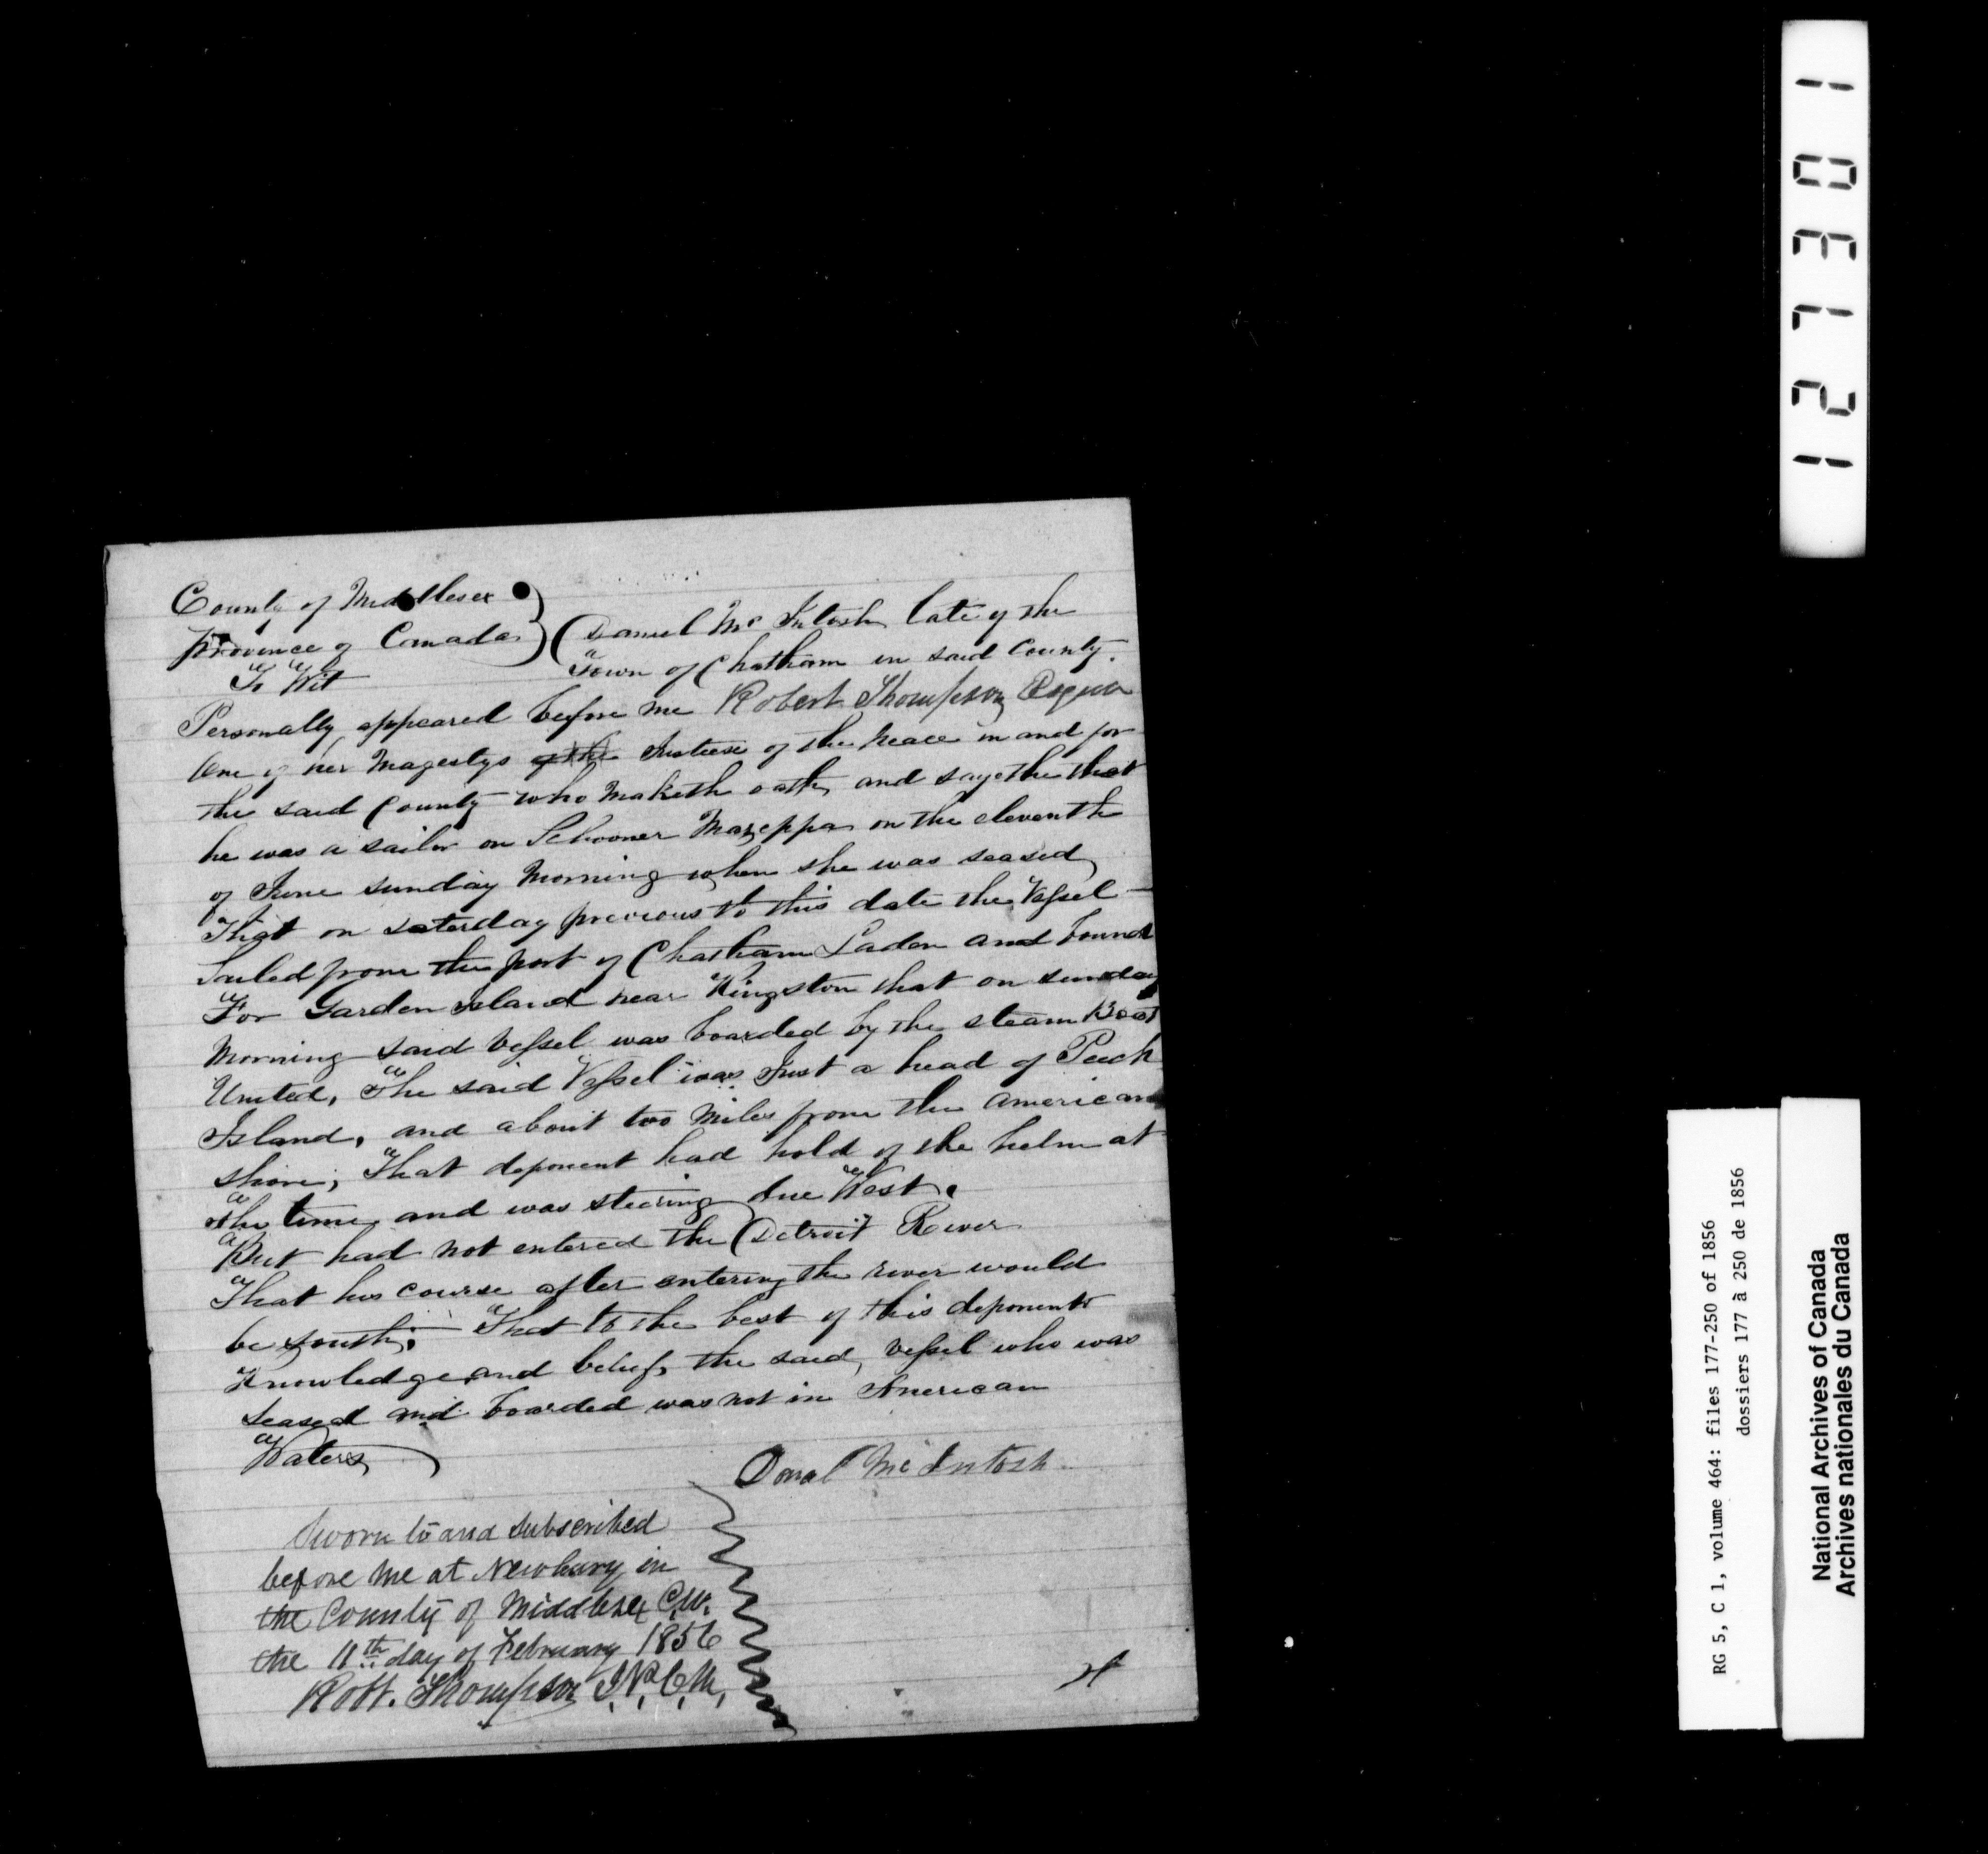 County of Middlesex
Province of Canada
To Wit
Daniel Mc Intosh late of the
Town of Chatham in said County.
Personally appeared before me Robert Thompson Esquire
One of her Magestys of the Justices of the peace in and for
the said County who maketh oath and sayethe that
he was a sailor on Schooner Mazeppa on the eleventh
of June sunday Morning when she was seased
That on saterday previous to this date the Vessel
Sailed from the port of Chatham Laden and bound
For Garden Island near Kingston that on sunday
Morning said Vessel was boarded by the steam Boat
United, The said Vessel was Just a head of Peach
Island, and about two Miles from the American
shore, That deponent had hold of the helm at
the time and was steering due West.
But had not entered the Detroit River
That his course after entering the river would
be south; That to the best of this deponents
Knowledge and belief, the said Vessel who was
seased and boarded was not in American
Waters
Donal Mc Intosh
Sworn to and subscribed
before me at Newbury in
the County of Middlesex C.W.
the 11th day of February 1856
Robt. Thompson J.P. C.M.
127301
RG 5, C 1, volume 464: files 177-250 of 1856
dossiers 177 à 250 de 1856
National Archives of Canada
Archives nationales du Canada